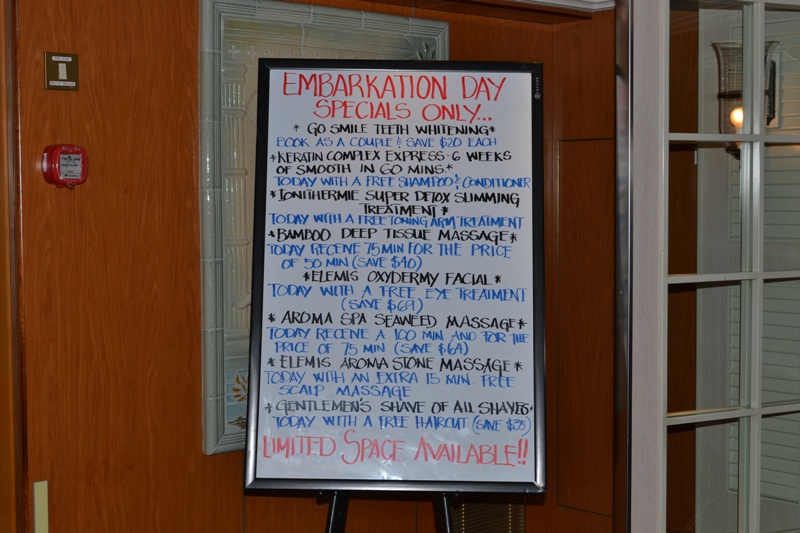 EMBARKATION DAY
SPECIALS ONLY...
* GO SMILE TEETH WHITENING*
BOOK AS A COUPLE & SAVE $20 EACH
*KERATIN COMPLEX EXPRESS-6 WEEKS
OF SMOOTH IN 60 MINS.*
TODAY WITH A FREE SHAMPOO & CONDITIONER
*IONITHERMIE SUPER DETOX SLIMMING
TREATMENT*
TODAY WITH A FREE TONING ARM TREATMENT
*BAMBOO DEEP TISSUE MASSAGE*
TODAY RECEIVE 75MIN FOR THE PRICE
OF 50 MIN (SAVE $40)
*ELEMIS OXYDERMY FACIAL*
TODAY WITH A FREE EYE TREATMENT
(SAVE $69)
* AROMA SPA SEAWEED MASSAGE*
TODAY RECEIVE A 100 MIN AND FOR THE
PRICE OF 75 MIN (SAVE $64)
* ELEMIS AROMA STONE MASSAGE*
TODAY WITH AN EXTRA 15 MIN. FREE
SCALP MASSAGE
*GENTLEMEN'S SHAVE OF ALL SHAVES*
TODAY WITH A FREE HAIRCUT (SAVE $35)
LIMITED SPACE AVAILABLE!!